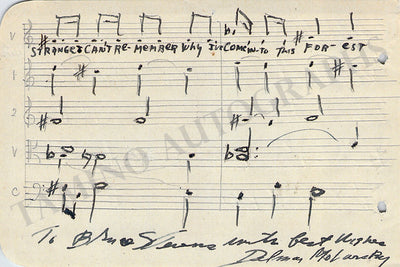 STRANGE I CAN'T RE-MEMBER WHY I'VE COME IN-TO THIS FOR-EST
V
1
2
V
C
TAMINO AUTOGRAPHS
To with best wishes